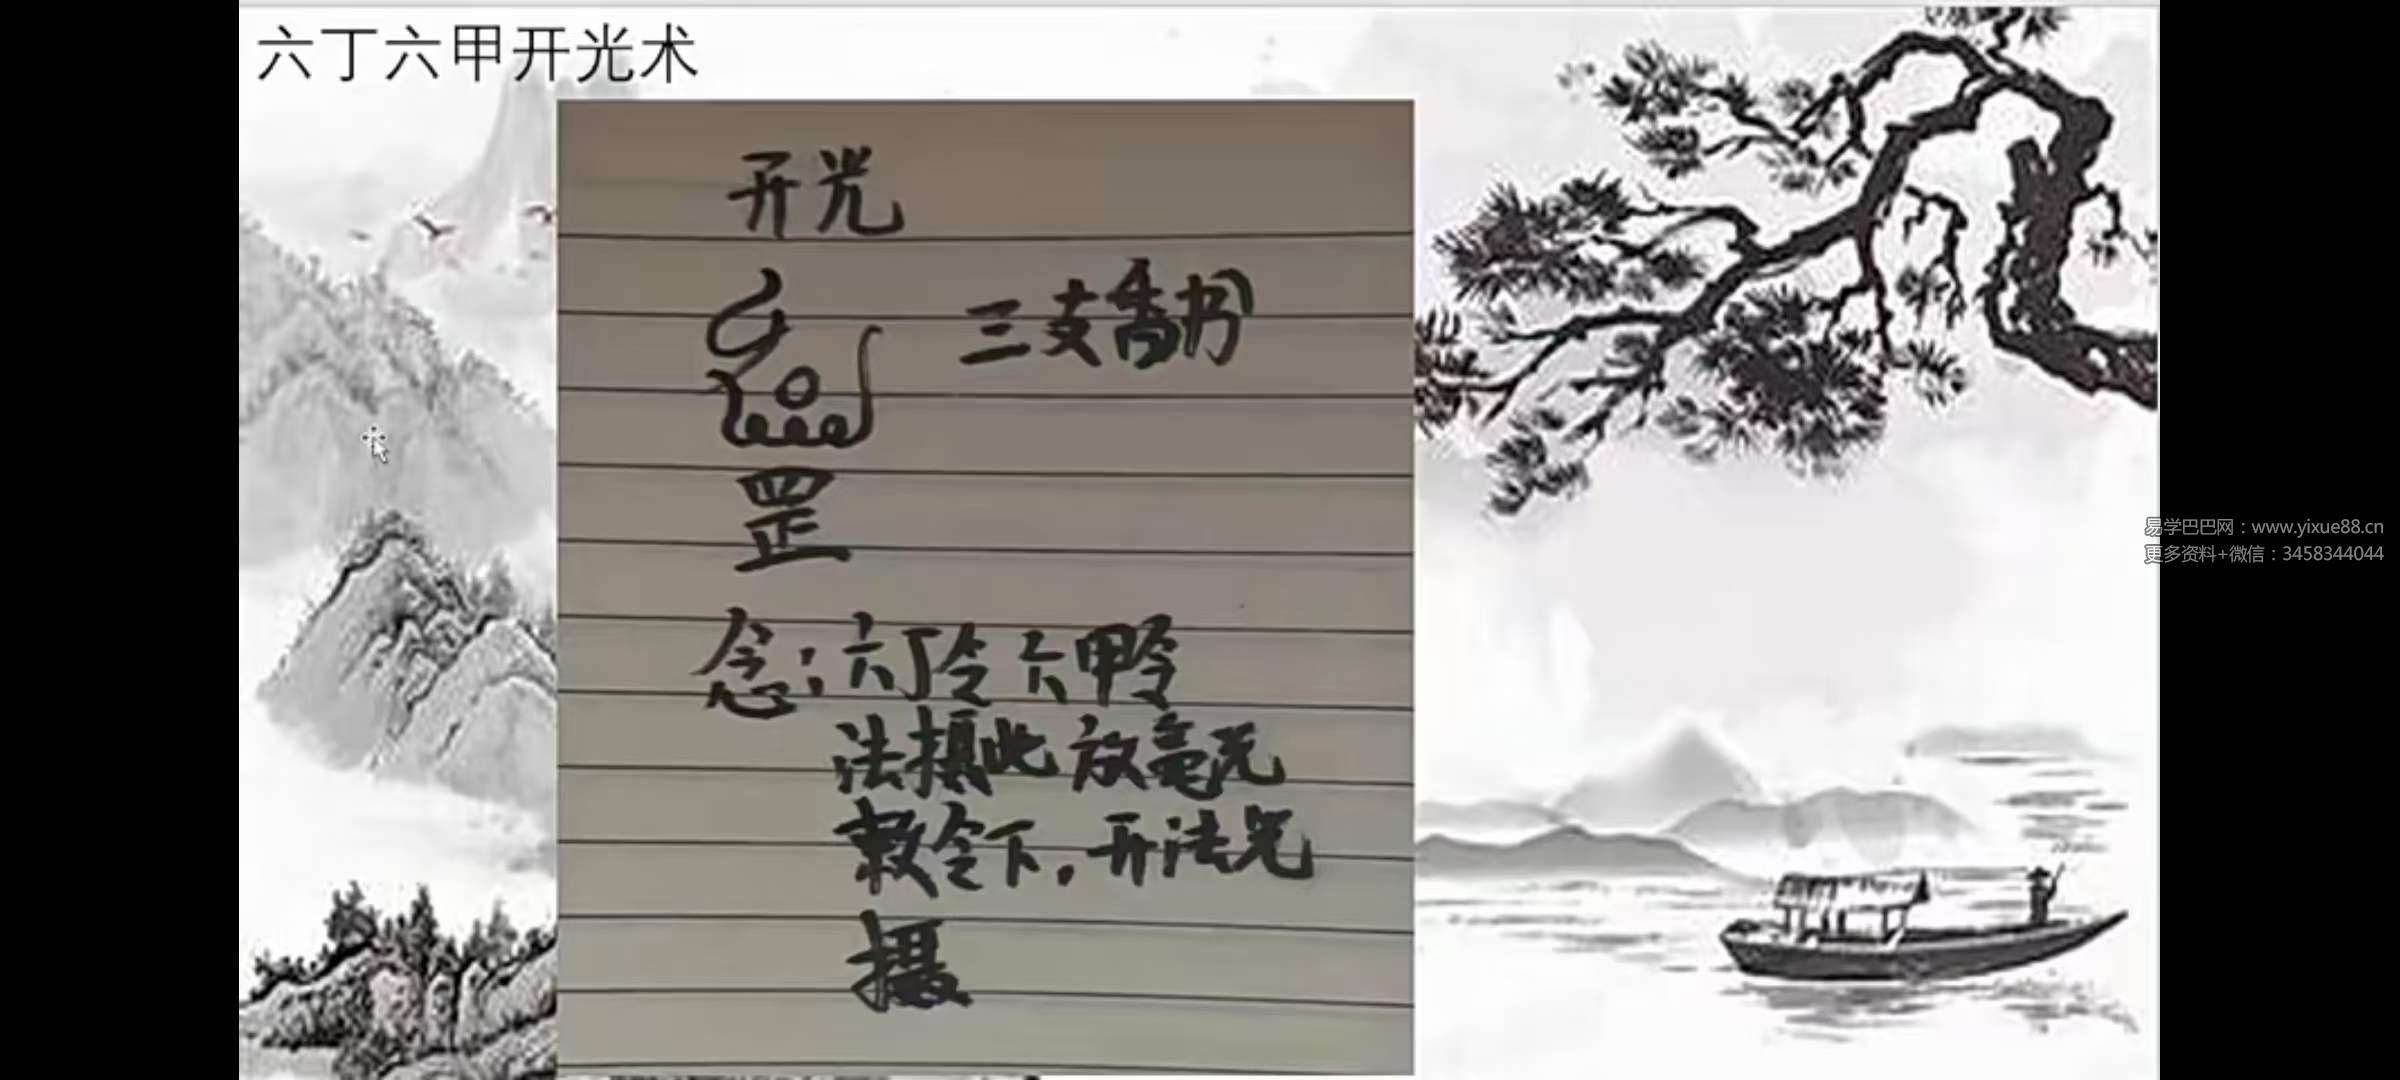 六丁六甲开光术
开光
三支香书
罡
念：六丁令六甲令
法摄此放毫光
敕令下，开法光
摄
易学巴巴网：www.yixue88.cn
更多资料+微信：3458344044